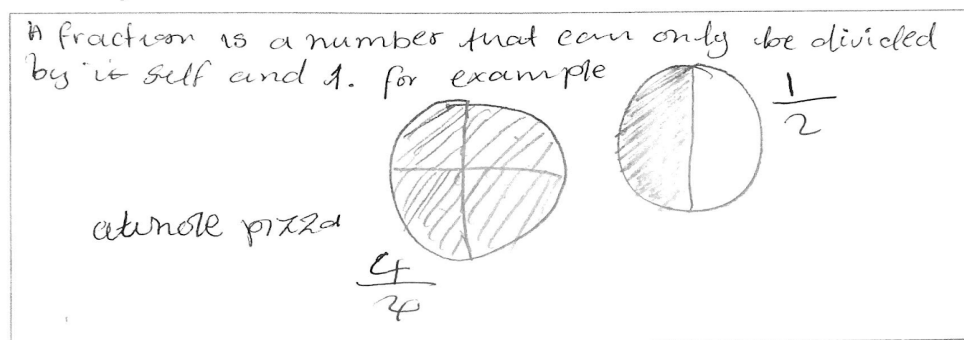 A fraction is a number that can only be divided
by it self and 1. for example
1/2
a whole pizza
4/4